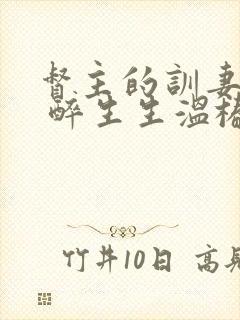 督主的訓妻
醉生生溫樁
竹井10日 高